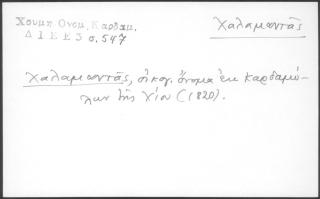 Χουμη. Ονομ. Καρδαμ.
ΔΙΕΕ3 σ. 547
Χαλαμωντᾶς
Χαλαμωντᾶς, οἰκογ. ὄνομα ἐκ Καρδαμύ-
λων τῆς Χίου (1820).